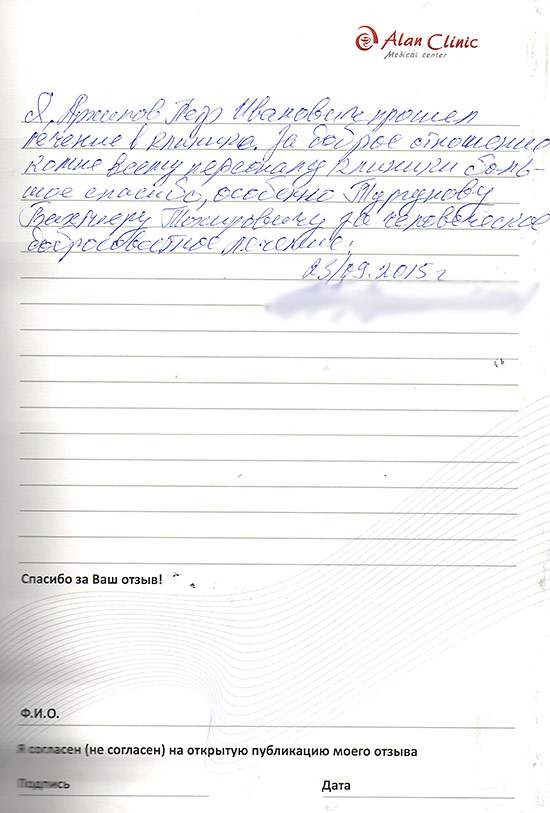 Alan Clinic
Medical center
Я, Архипов Петр Иванович прошел
лечение в клинике. За доброе отношение
ко мне всему персоналу клиники боль-
шое спасибо, особенно Тургунову
Бахтиеру Тохировичу за человеческое
добросовестное лечение.
23/09.2015 г
Спасибо за Ваш отзыв!
Ф.И.О.
Я согласен (не согласен) на открытую публикацию моего отзыва
Подпись Дата